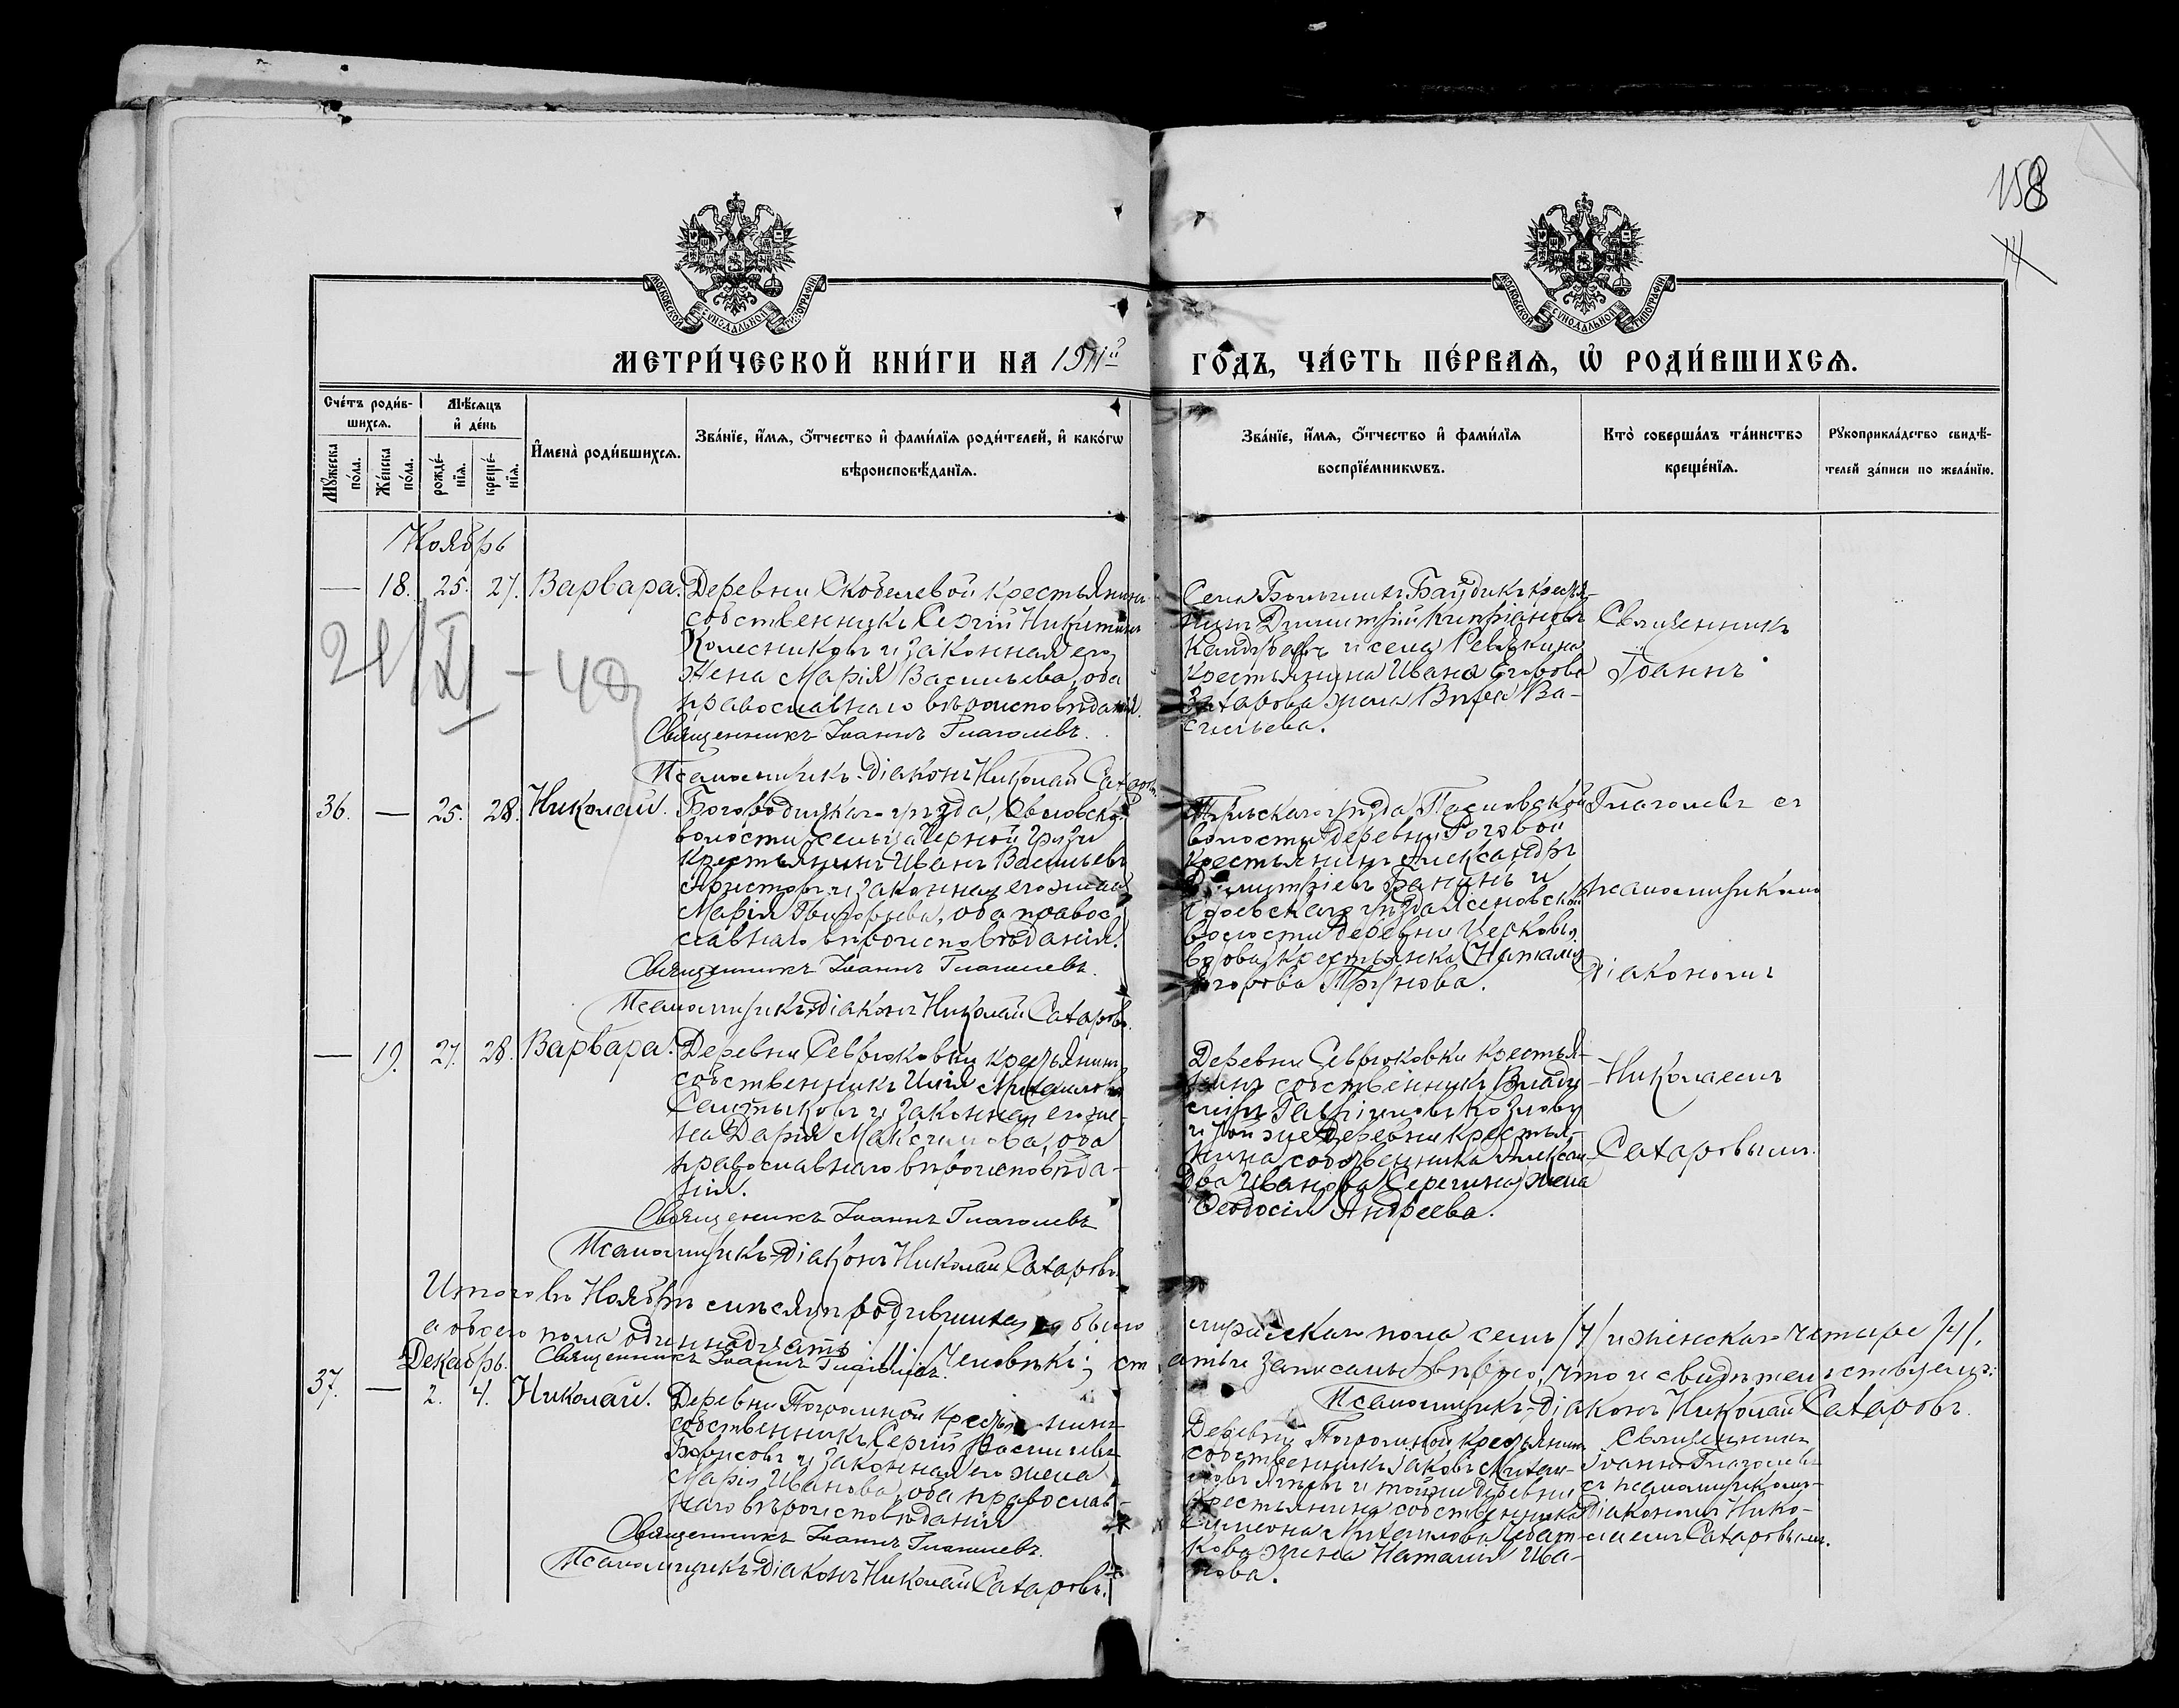 158
14
МОСКОВСКОЙ СѴНОДАЛЬНОЙ ТИПОГРАФІИ
МОСКОВСКОЙ СѴНОДАЛЬНОЙ ТИПОГРАФІИ
МЕТРИ́ЧЕСКОЙ КНИ́ГИ НА 1911й
ГО́ДЪ, ЧА́СТЬ ПЕ́РВАѦ, Ѽ РОДИ́ВШИХСѦ.
Сче́тъ роди́в-
шихсѧ.
Мꙋ́жеска
по́ла.
Же́нска
по́ла.
Мѣ́сѧцъ
и҆ де́нь
рожде́-
нїѧ.
креще́-
нїѧ.
И҆мена̀ роди́вшихсѧ.
Зва́нїе, и҆́мѧ, ѻ҆́тчество и҆ фами́лїѧ роди́телей, и҆ како́гѡ
вѣроисповѣ́данїѧ.
Зва́нїе, и҆́мѧ, ѻ҆́тчество и҆ фами́лїѧ
воспрїе́мникѡвъ.
Кто̀ соверша́лъ та́инство
креще́нїѧ.
Рꙋкоприкла́дство свидѣ́-
телей за́писи по жела́нїю.
Ноябрь
— 18. 25. 27. Варвара.
Деревни Скобелевой крестьянинъ
собственникъ Сергій Никитинъ
Колесниковъ и законная его
жена Марія Васильева, оба
православнаго вѣроисповѣданія.
Священникъ Іоаннъ Глаголевъ.
Псаломщикъ-діаконъ Николай Сахаровъ.
Села Большихъ Байдикъ крестья-
нинъ Димитрій Кипріановъ
и села Ревякина
крестьянина Ивана Егорова
Захарова жена Вѣра Ва-
сильева.
Священникъ
Іоаннъ
21/XI - 49
36. — 25. 28. Николай.
Богородицкаго уѣзда,
волости, сельца Черной Грязи
крестьянинъ Иванъ Васильевъ
Аристовъ и законная его жена
Марія Григорьева, оба правос-
славнаго вѣроисповѣданія.
Священникъ Іоаннъ Глаголевъ.
Псаломщикъ-діаконъ Николай Сахаровъ.
Тульскаго уѣзда
волости деревни Роговой
крестьянинъ Александръ
Димитріевъ Банинъ и
уѣзда
волости деревни
вдова, крестьянка Наталія
Егорова Трунова.
Глаголевъ съ
псаломщикомъ
діакономъ
— 19. 27. 28. Варвара.
Деревни Севрюковки крестьянинъ
собственникъ Илія Михаиловъ
и законная его же-
на Дарія Максимова, оба
православнаго вѣроисповѣда-
нія.
Священникъ Іоаннъ Глаголевъ
Псаломщикъ-діаконъ Николай Сахаровъ.
Деревни Севрюковки крестья-
нинъ собственникъ Влади-
міръ Гавріиловъ Козловъ
и той же деревни крестья-
нина собственника Алексан-
дра Иванова Серегина жена
Ѳеодосія Андреева.
Николаемъ
Сахаровымъ.
Итого въ Ноябрѣ мѣсяцѣ родившихся было
мужескаго пола семь /7/ и женскаго четыре /4/,
а обоего пола одиннадцать /11/ человѣкъ;
записаны вѣрно, что и свидѣтельствуемъ:
Священникъ Іоаннъ Глаголевъ.
Псаломщикъ-діаконъ Николай Сахаровъ.
Декабрь.
37. — 2. 4. Николай.
Деревни Погромной крестьянинъ
собственникъ Сергій Васильевъ
Борисовъ и законная его жена
Марія Иванова, оба православ-
наго вѣроисповѣданія
Священникъ Іоаннъ Глаголевъ.
Псаломщикъ-діаконъ Николай Сахаровъ.
Деревни Погромной крестьянинъ
собственникъ Іаковъ Михаи-
ловъ и той же деревни
крестьянина собственника
Симеона Михаилова
кова жена Наталія Ива-
нова.
Священникъ
Іоаннъ Глаголевъ
съ псаломщикомъ-
діакономъ Нико-
лаемъ Сахаровымъ.